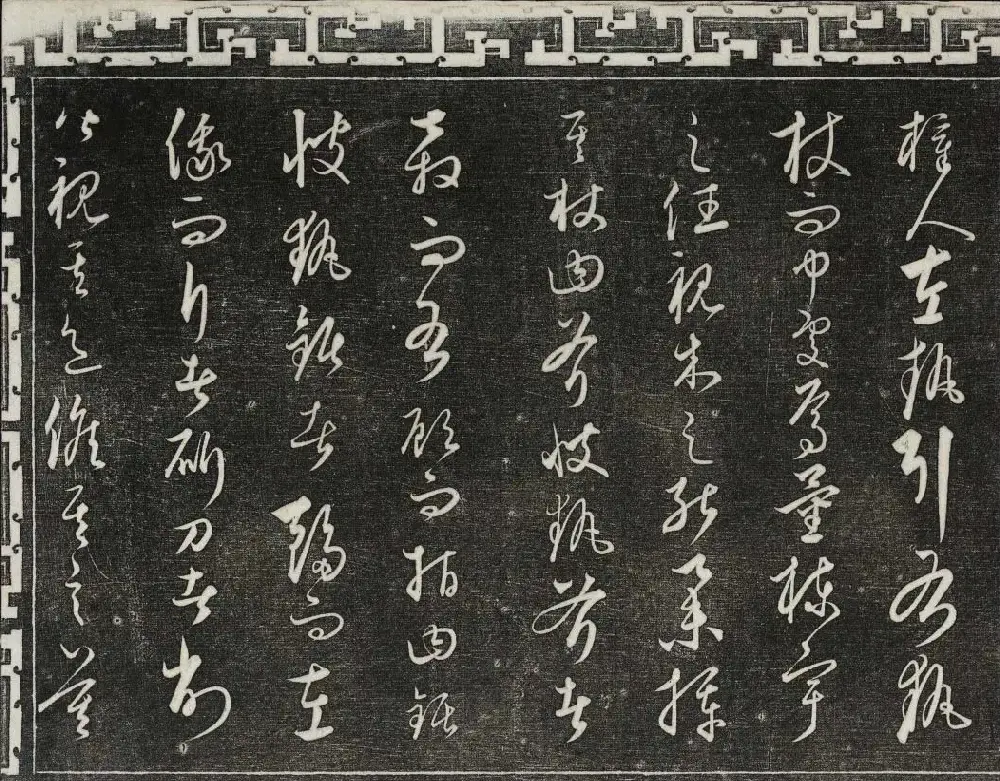 梓人左執引右執
杖而中處焉量棟宇
之任視木之能舉揮
其杖曰斧彼執斧者
奔而右顧而指曰鋸
彼執鋸者趨而左
俄而斤者斲刀者削
皆視其色俟其言莫